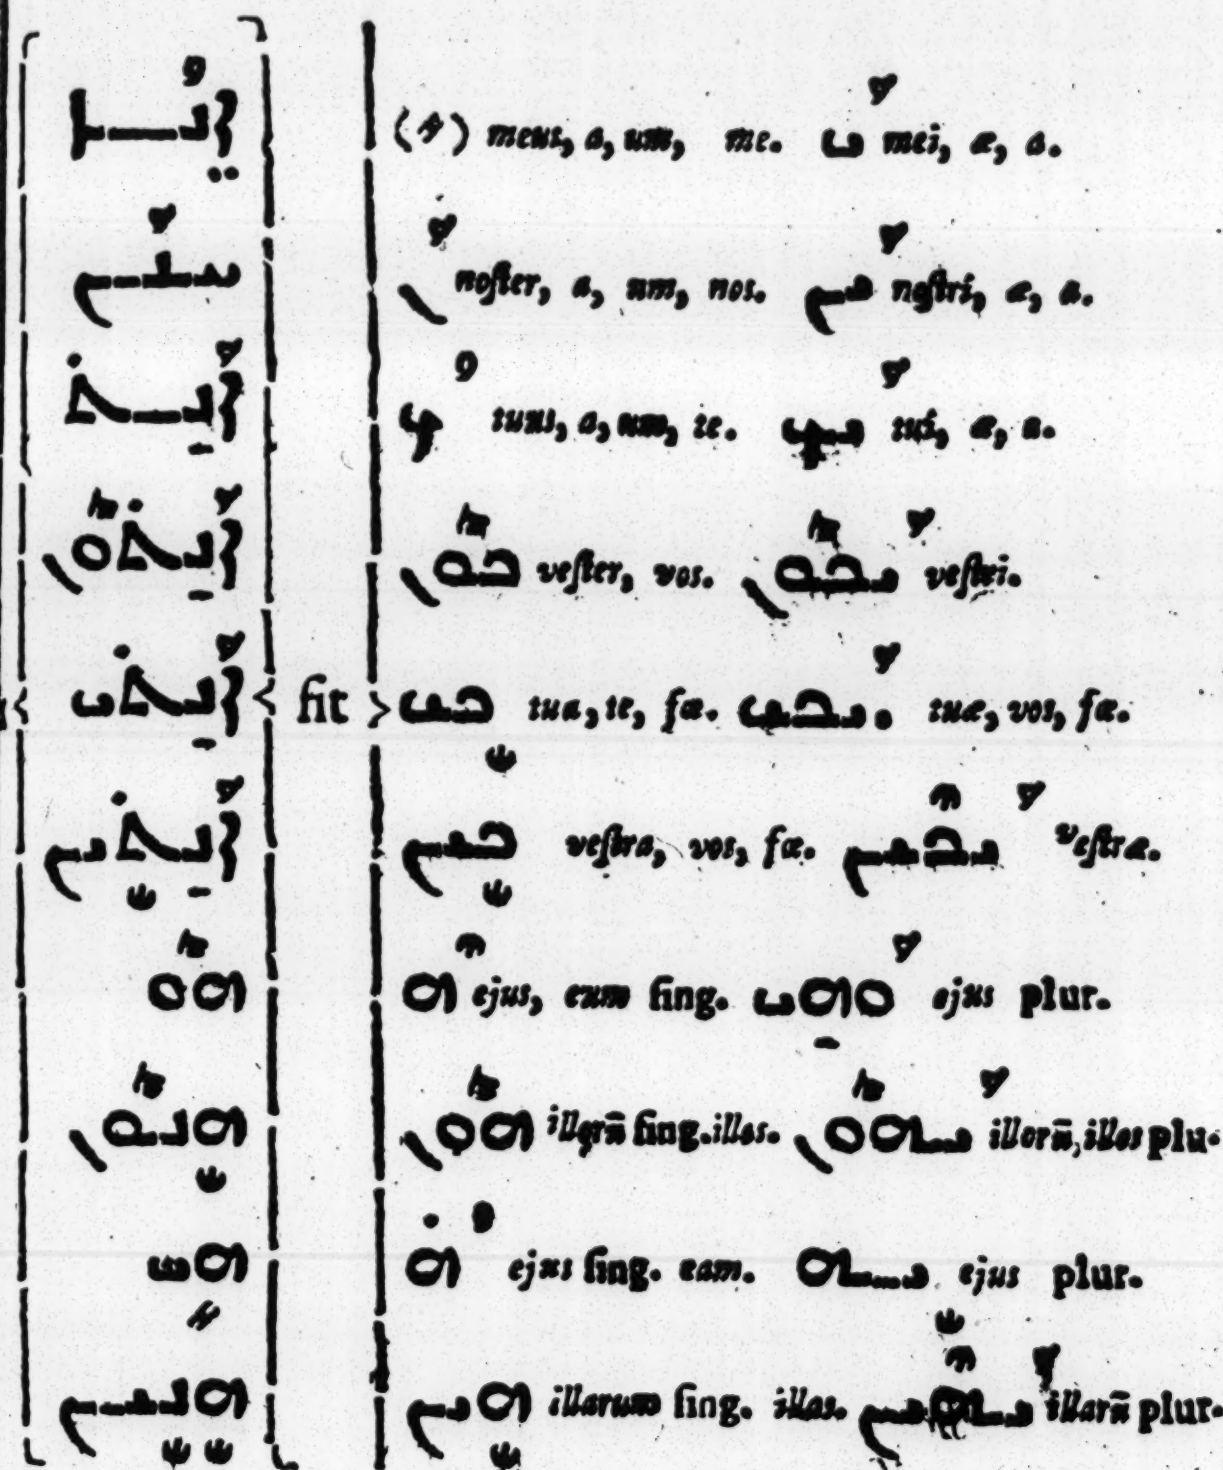 ܐܢܳܐ (ܺ) meus, a, um, me. ܰܝ mei, æ, a.
ܚܢܰܢ ܰܢ noſter, a, um, nos. ܰܝܢ noſtri, æ, a.
ܐܰܢ̱ܬ̇ ܳܟ tuus, a, um, te. ܰܝܟ tui, æ, a.
ܐܰܢ̱ܬ̇ܽܘܢ ܟܽܘܢ veſter, vos. ܰܝܟܽܘܢ veſtri.
ܐܰܢ̱ܬ̇ܝ fit ܶܟܝ tua, te, fœ. ܰܝܟܝ tuæ, vos, fœ.
ܐܰܢ̱ܬ̇ܶܝܢ ܟܶܝܢ veſtra, vos, fœ. ܰܝܟܶܝܢ veſtræ.
ܗܽܘ ܶܗ ejus, eum ſing. ܰܘܗ̱ܝ ejus plur.
ܗܶܢܽܘܢ ܗܽܘܢ illorũ ſing. illos. ܰܝܗܽܘܢ illorũ, illos plu.
ܗܺܝ ܳܗ̇ ejus ſing. eam. ܶܝܗ ejus plur.
ܗܶܢܶܝܢ ܗܶܝܢ illarum ſing. illas. ܰܝܗܶܝܢ illarũ plur.